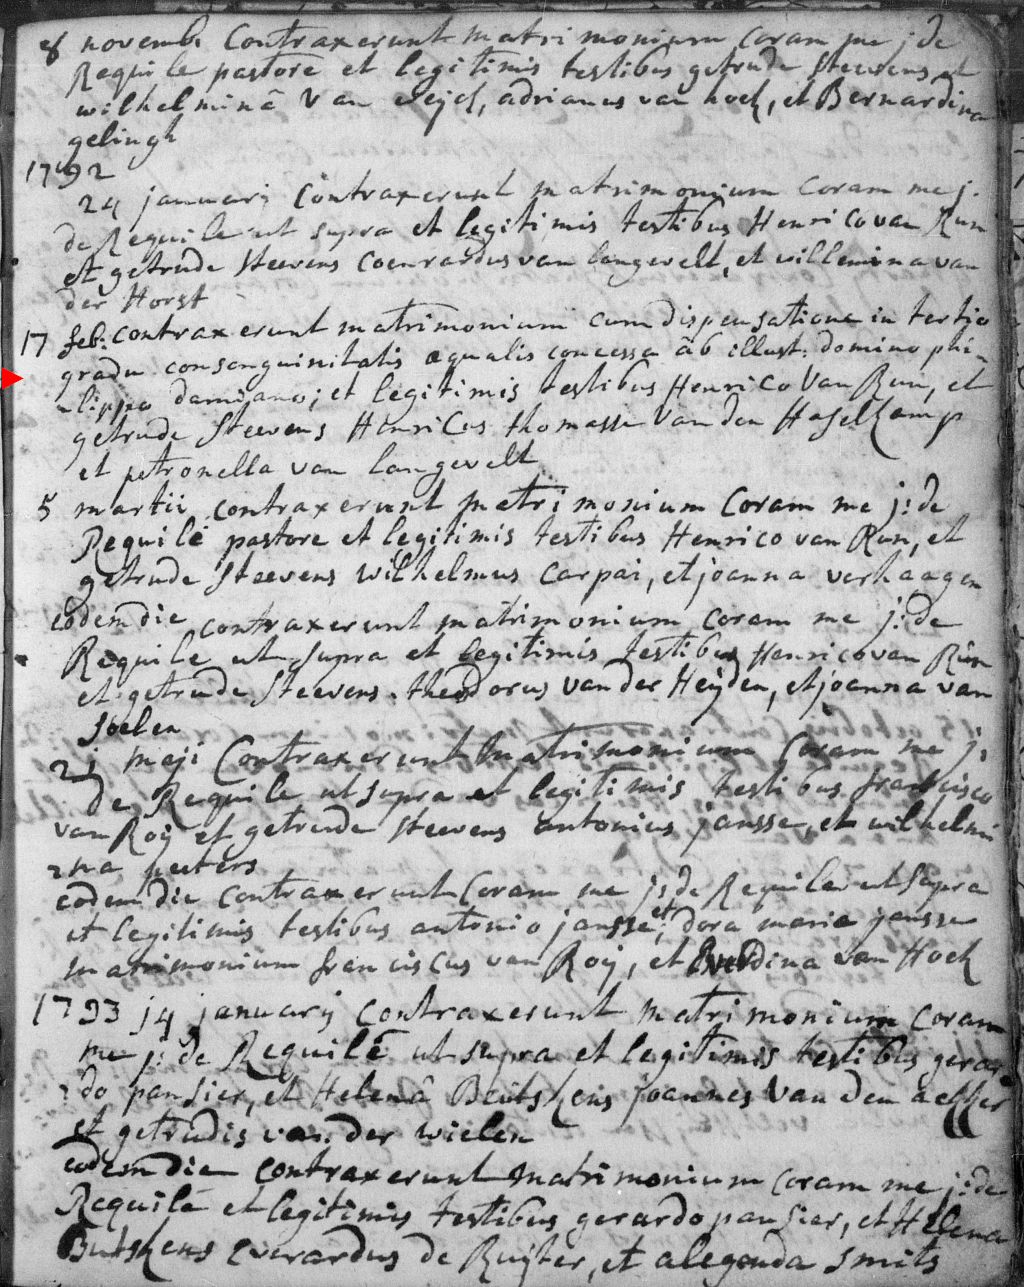 8 novemb: Contraxerunt matrimonium coram me j: de
Requilé pastore et legitimis testibus getrude Steevens et
wilhelminâ Van adrianus van hoek, et Bernardina
gelingh
1792
24 januarij Contraxerunt matrimonium coram me j.
de Requile ut supra et legitimis testibus Henrico van Run
et getrude Steevens Coenrardus van langevelt, et willemina van
der Horst
17 feb: contraxerunt matrimonium cum dispensatione in tertio
gradu consanguinitatis aqualis concessa ab illust: domino phi-
-lippo damiano; et legitimis testibus Henrico Van Run, et
getrude Steevens Henricus thomasse Van den Haselkamp
et petronella van langevelt
5 martii contraxerunt matrimonium Coram me j: de
Requilé pastore et legitimis testibus Henrico van Run, et
getrude Steevens wilhelmus Carpai, et joanna verhaagen
eodem die contraxerunt matrimonium coram me j: de
Requile ut supra et legitimis testibus Henrico van Run
et getrude Steevens. theodorus van der Heijden, et joanna van
Soelen
21 meji Contraxerunt matrimonium Coram me j:
de Requile ut supra et legitimis testibus francisco
van Roij et getrude Steevens antonius jansse, et wilhelmi
-na peeters
eodem die contraxerunt Coram me j: de Requile ut supra
et legitimis testibus antonio jansse, et dora maria jansse
matrimonium franciscus van Roij, et van Hoek
1793 14 januarij contraxerunt matrimonium coram
me j: de Requilé ut supra et legitimis testibus gerar-
-do pansier, et Helenâ Beutskens joannes Van den acker
et getrudis van der wielen
eodem die contraxerunt matrimonium coram me j: de
Requilé et legitimis testibus gerardo pansier, et Helena
Butskens Everardus de Ruijter, et alegonda Smits